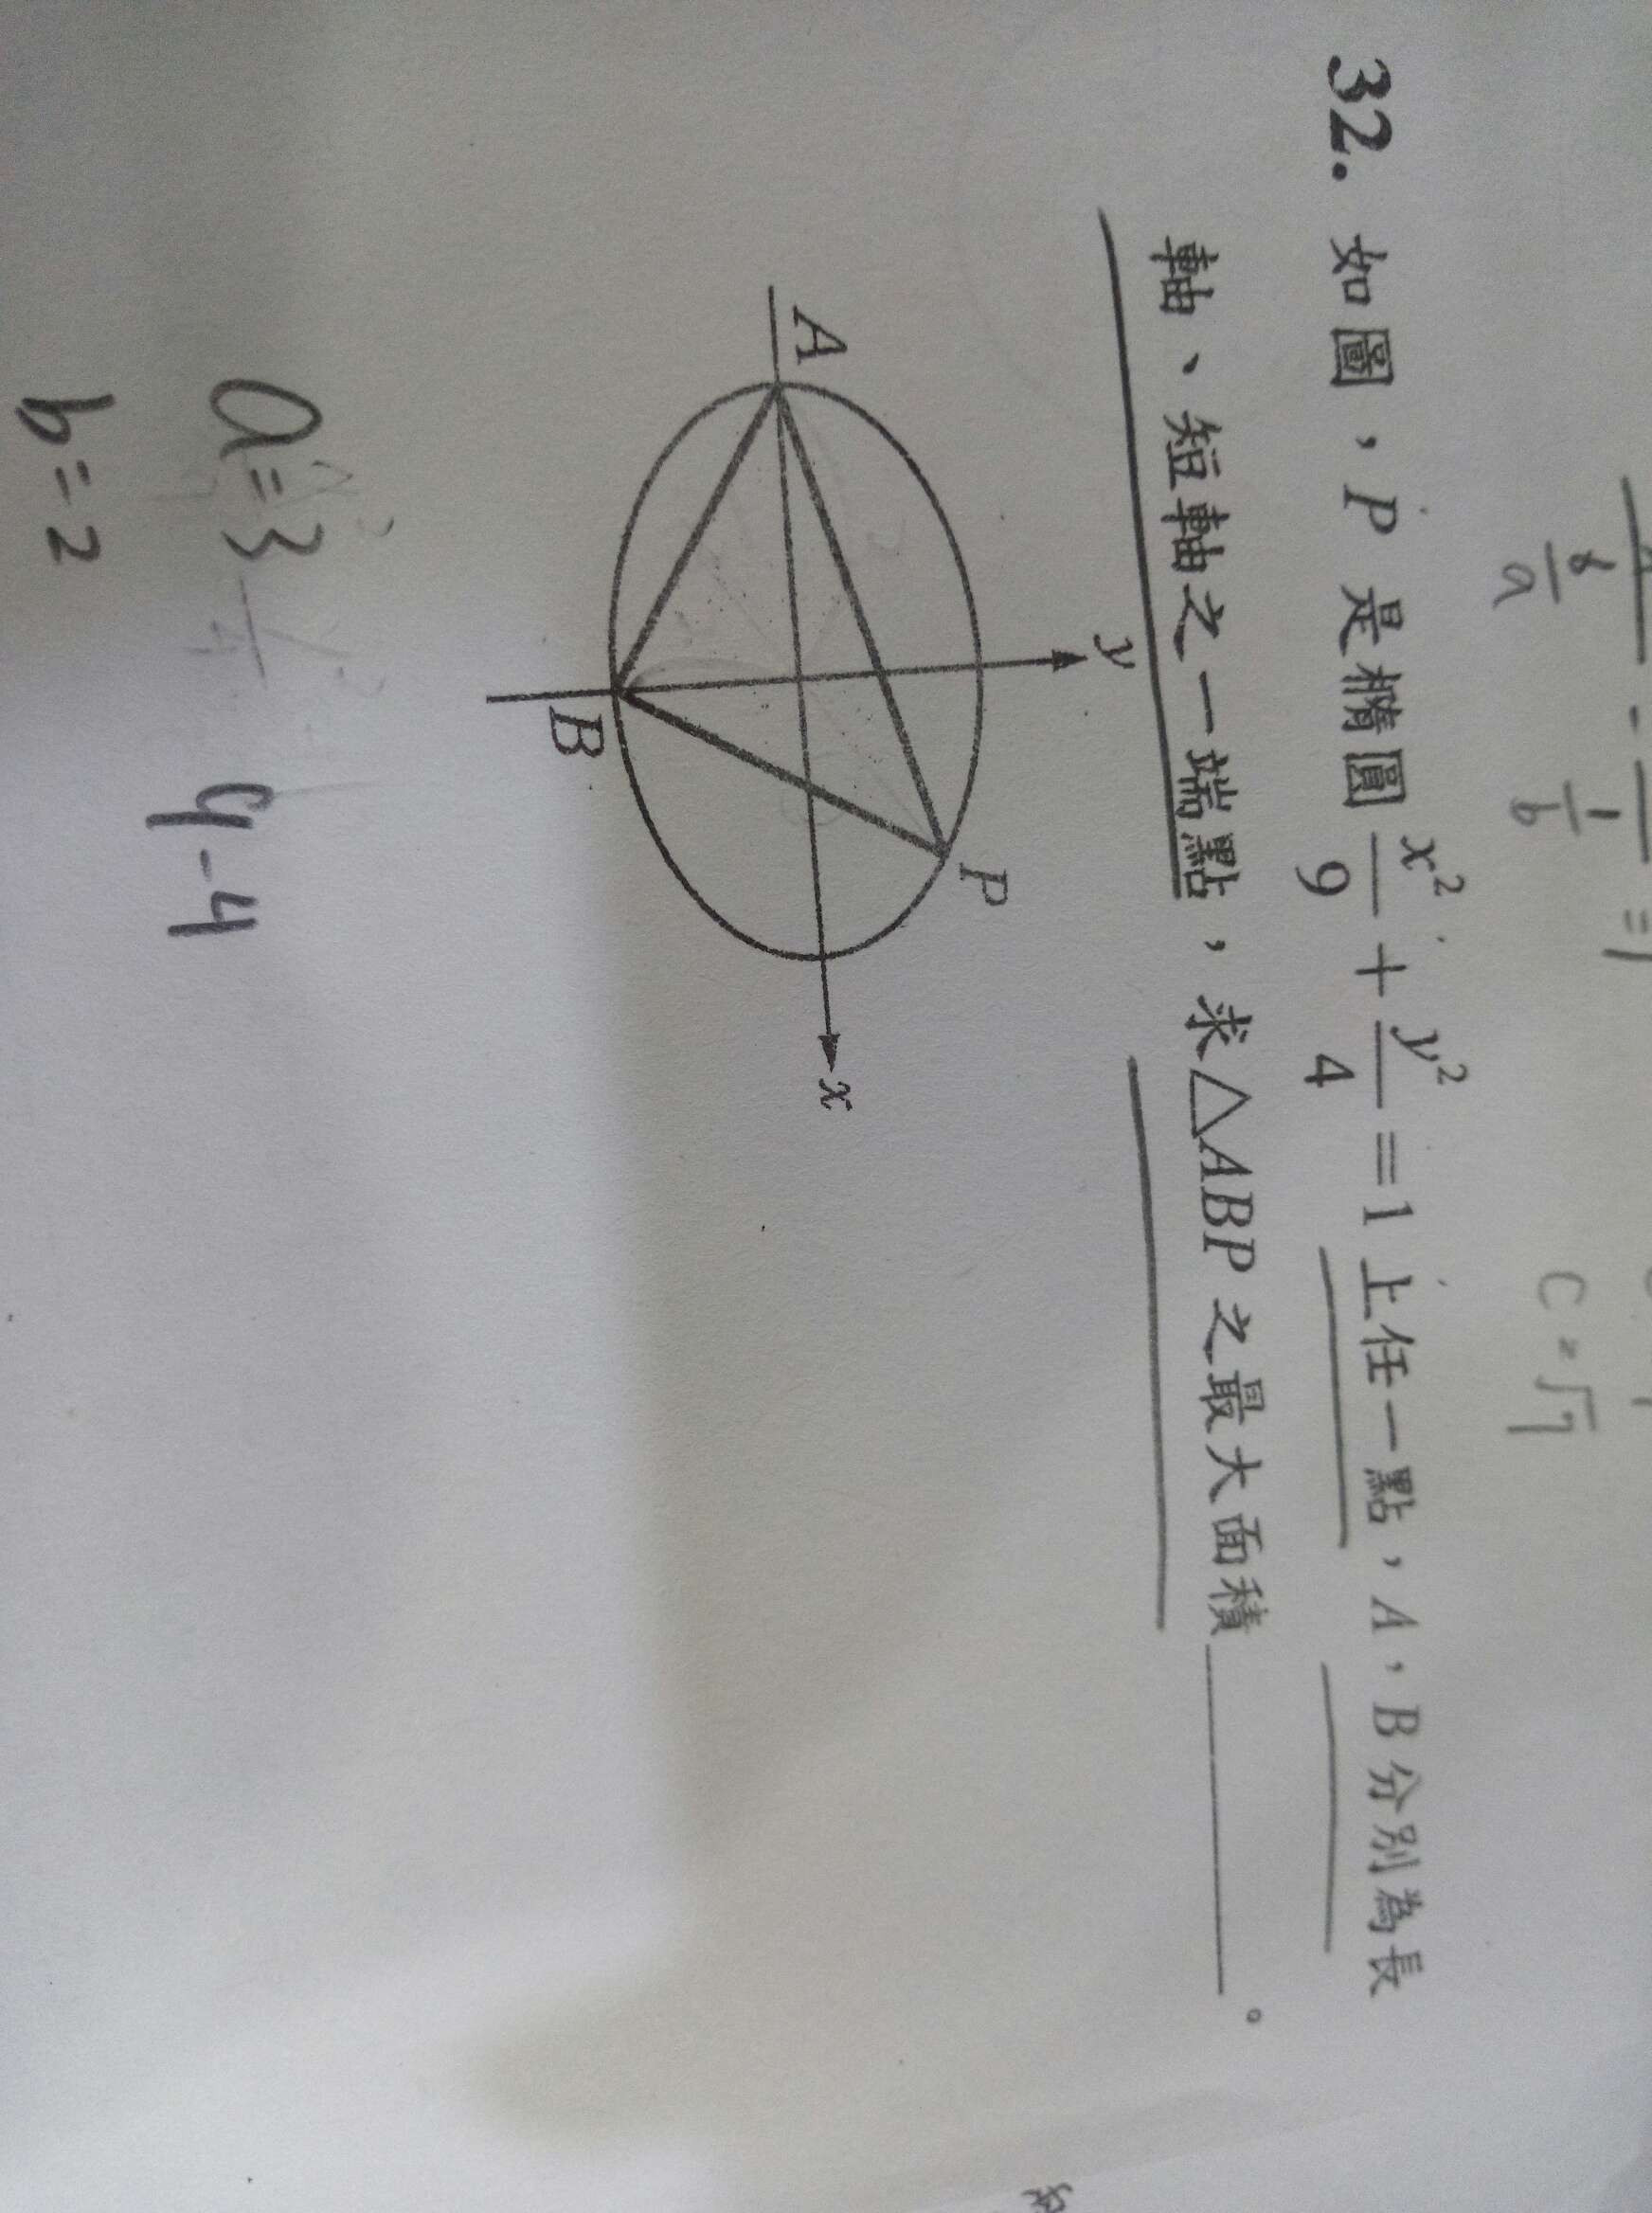 =1
b/a
1/b
c=√7
32. 如圖，P 是橢圓 x²/9 + y²/4 =1 上任一點，A，B 分別為長
軸、短軸之一端點，求△ABP 之最大面積＿＿＿＿。
y
A
P
x
B
a=3
9-4
b=2